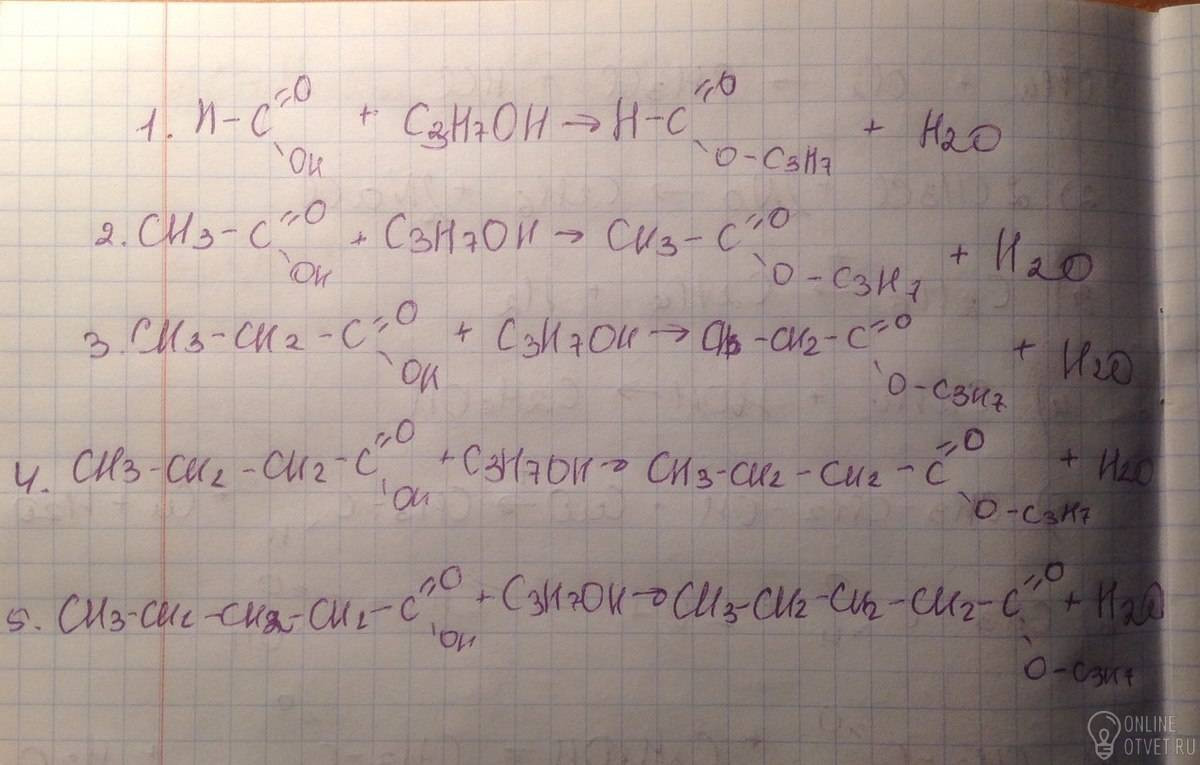 1. H-C=O OH + C3H7OH → H-C=O O-C3H7 + H2O
2. CH3-C=O OH + C3H7OH → CH3-C=O O-C3H7 + H2O
3. CH3-CH2-C=O OH + C3H7OH → CH3-CH2-C=O O-C3H7 + H2O
4. CH3-CH2-CH2-C=O OH + C3H7OH → CH3-CH2-CH2-C=O O-C3H7 + H2O
5. CH3-CH2-CH2-CH2-C=O OH + C3H7OH → CH3-CH2-CH2-CH2-C=O O-C3H7 + H2O
ONLINE
OTVET.RU